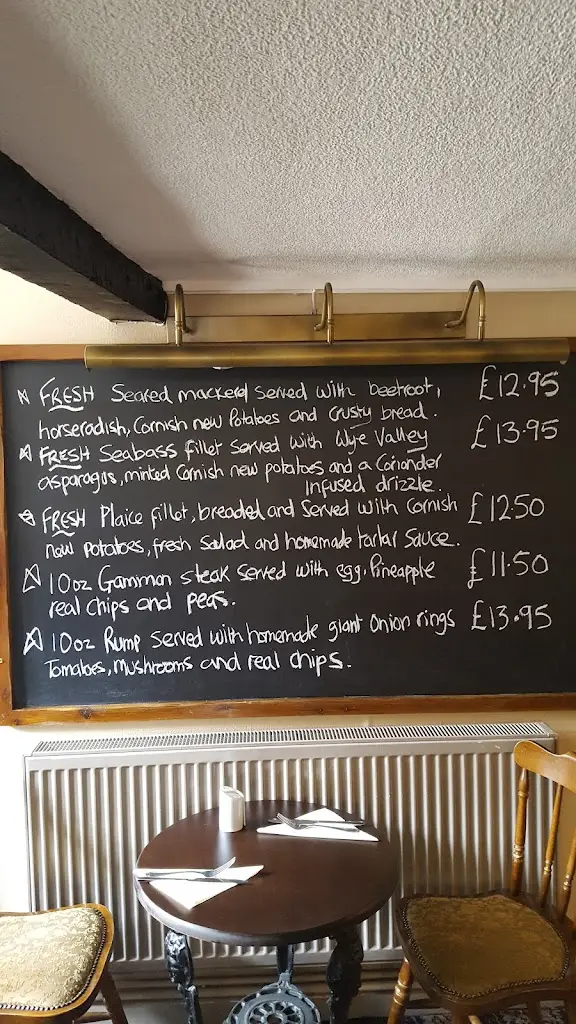 FRESH Seared mackerel served with beetroot, £12.95
horseradish, Cornish new Potatoes and Crusty bread.
FRESH Seabass fillet served with Wye Valley £13.95
asparagus, minted Cornish new potatoes and a Coriander
infused drizzle.
FRESH Plaice fillet, breaded and served with Cornish £12.50
new potatoes, fresh Salad and homemade tartar Sauce.
10oz Gammon steak served with egg, Pineapple £11.50
real chips and peas.
10oz Rump served with homemade giant Onion rings £13.95
Tomatoes, mushrooms and real chips.